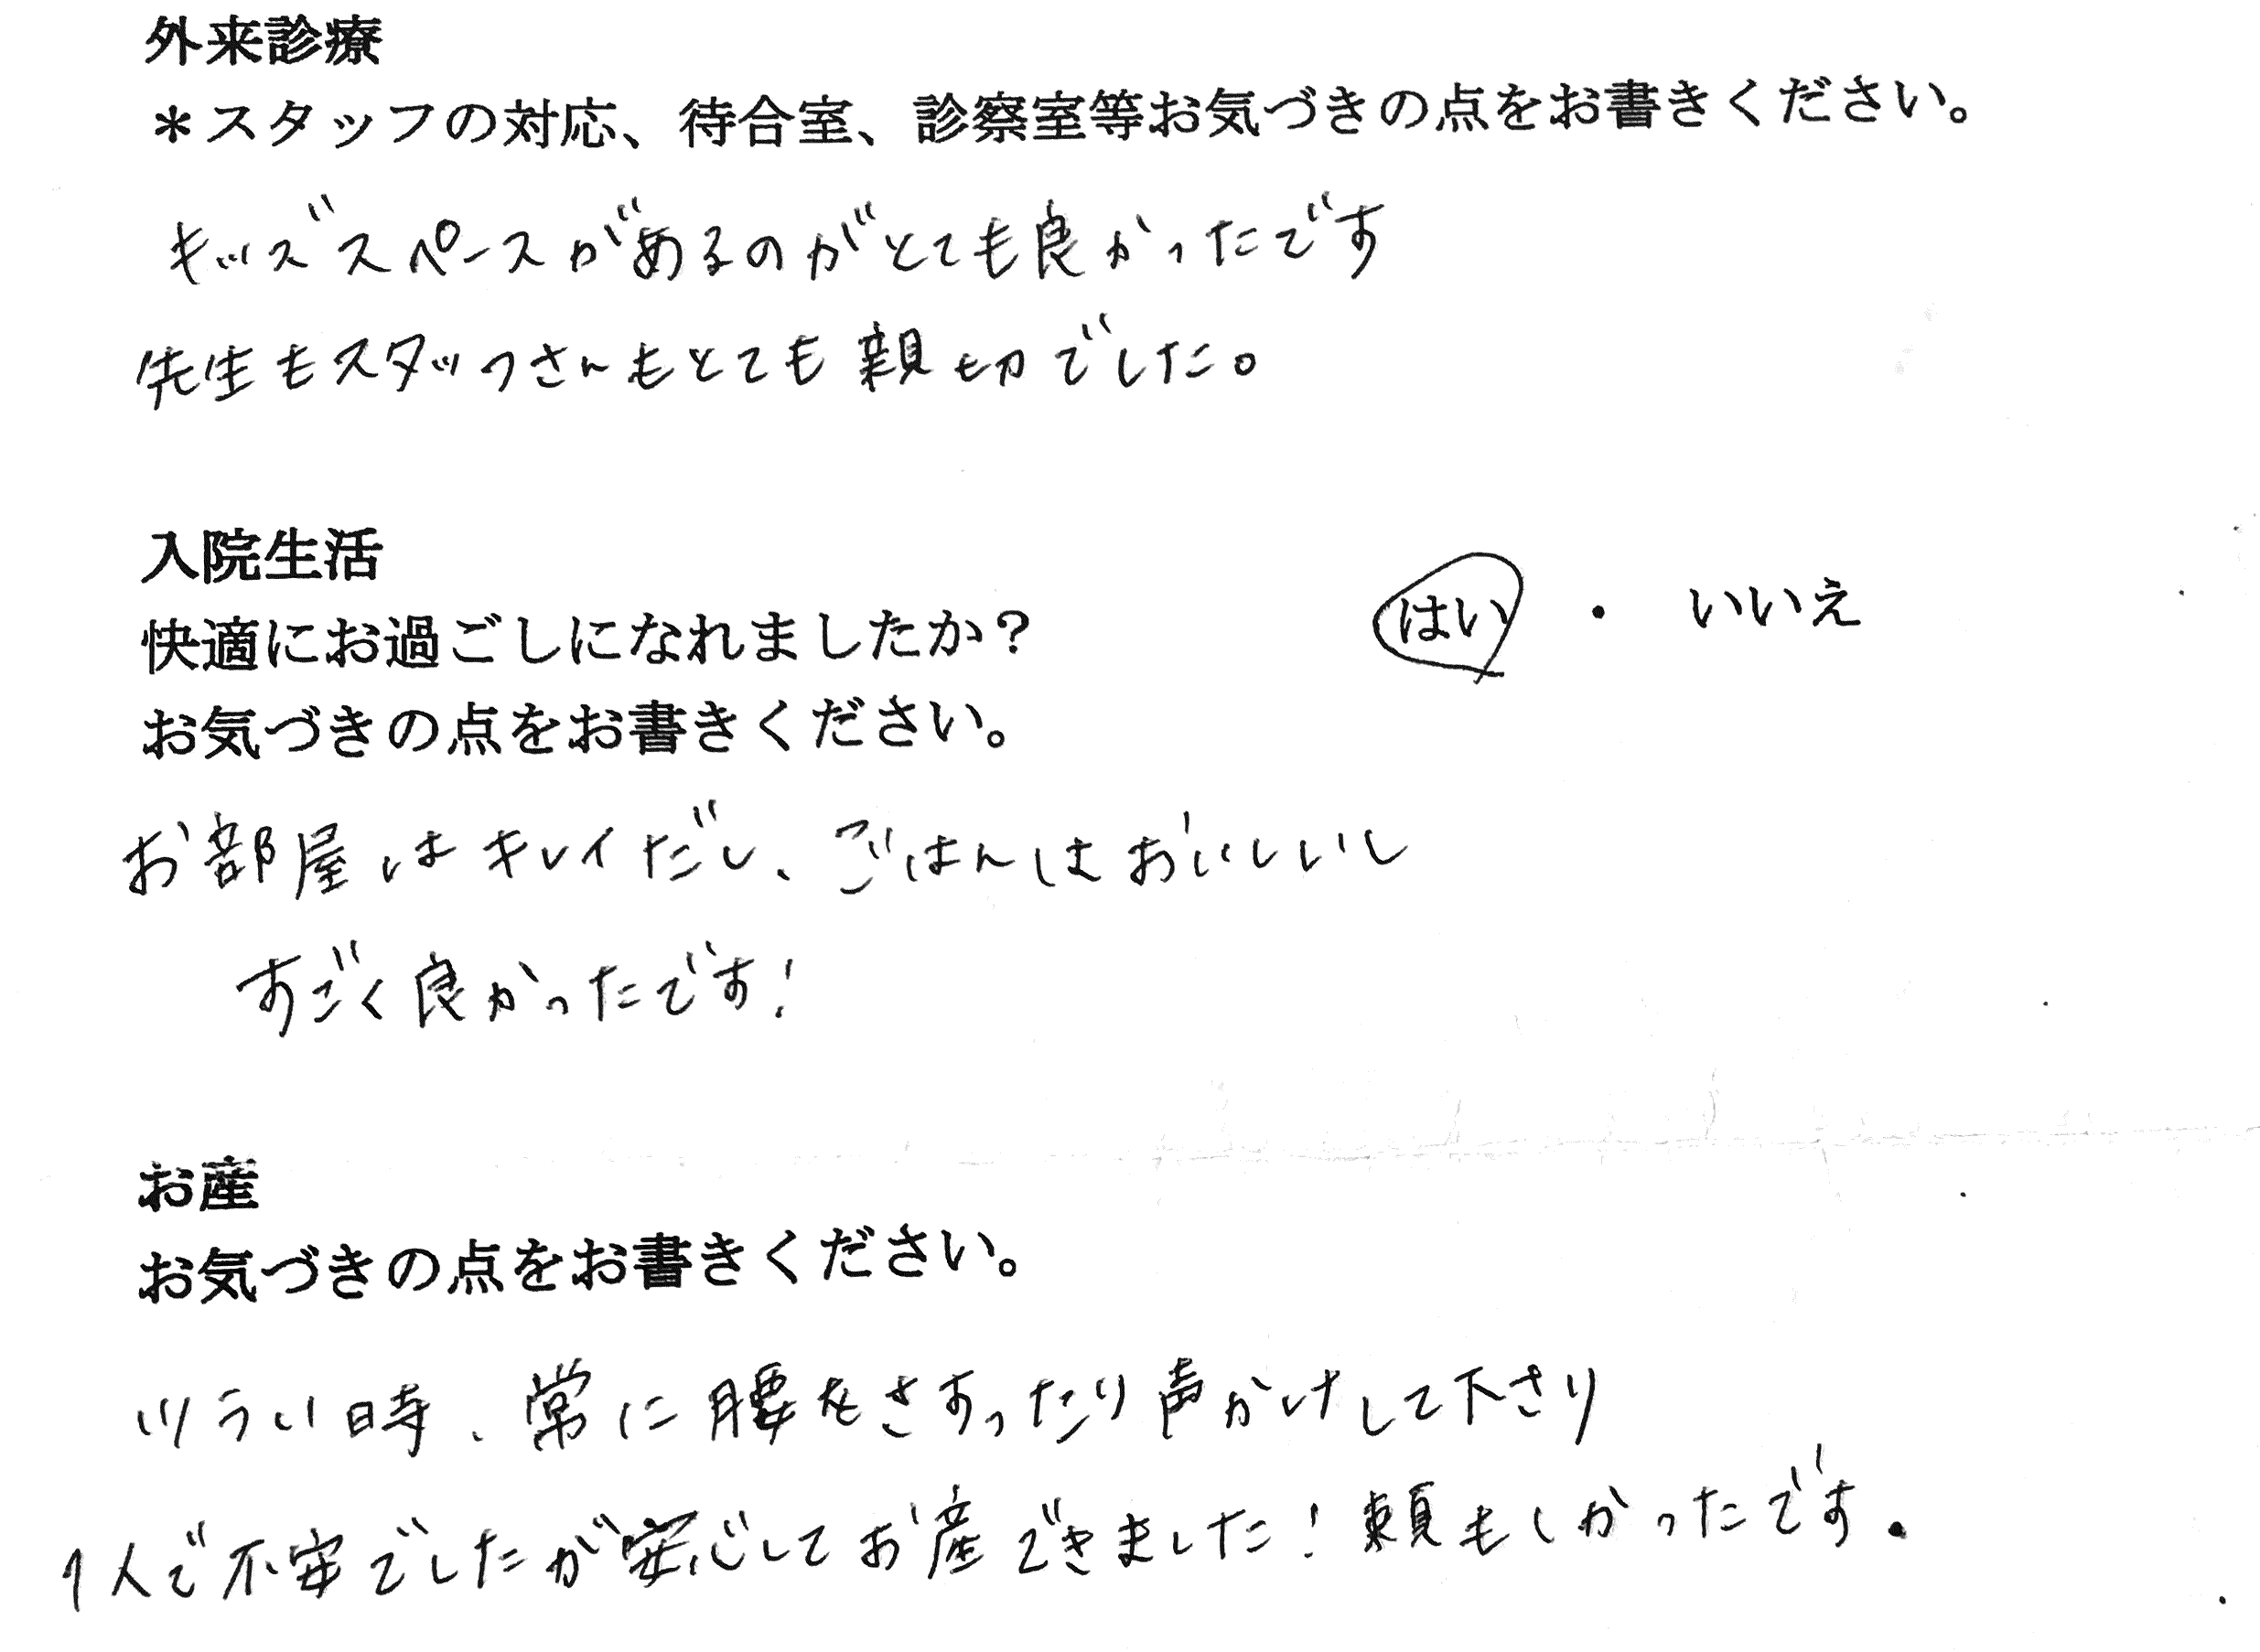 外来診療
＊スタッフの対応、待合室、診察室等お気づきの点をお書きください。
キッズスペースがあるのがとても良かったです
先生もスタッフさんもとても親切でした。
入院生活
快適にお過ごしになれましたか？ はい ・ いいえ
お気づきの点をお書きください。
お部屋はキレイだし、ごはんはおいしいし
すごく良かったです！
お産
お気づきの点をお書きください。
ツらい時、常に腰をさすったり声かけして下さり
1人で不安でしたが安心してお産できました！頼もしかったです。